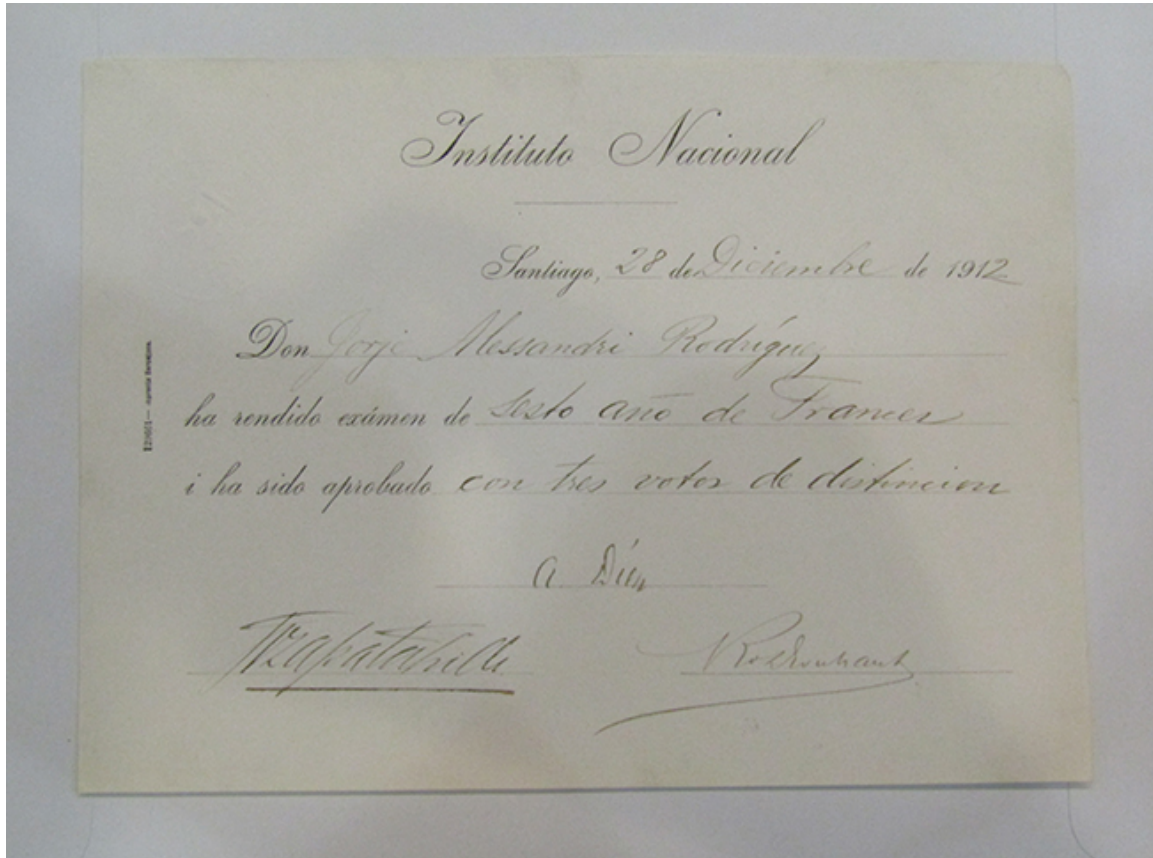 Instituto Nacional
Santiago, 28 de Diciembre de 1912
Don Jorje Alessandri Rodríguez
ha rendido exámen de sesto año de Frances
i ha sido aprobado con tres votos de distincion
A. Díen